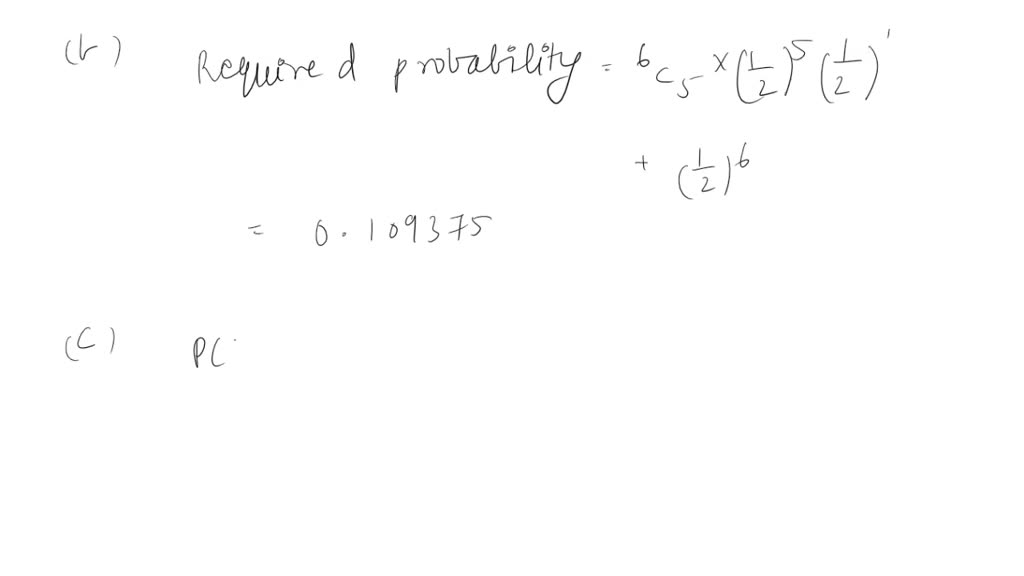 (b) Required probability = ⁶C₅ × (1/2)⁵ (1/2)¹
+ (1/2)⁶
= 0.109375
(c) P(